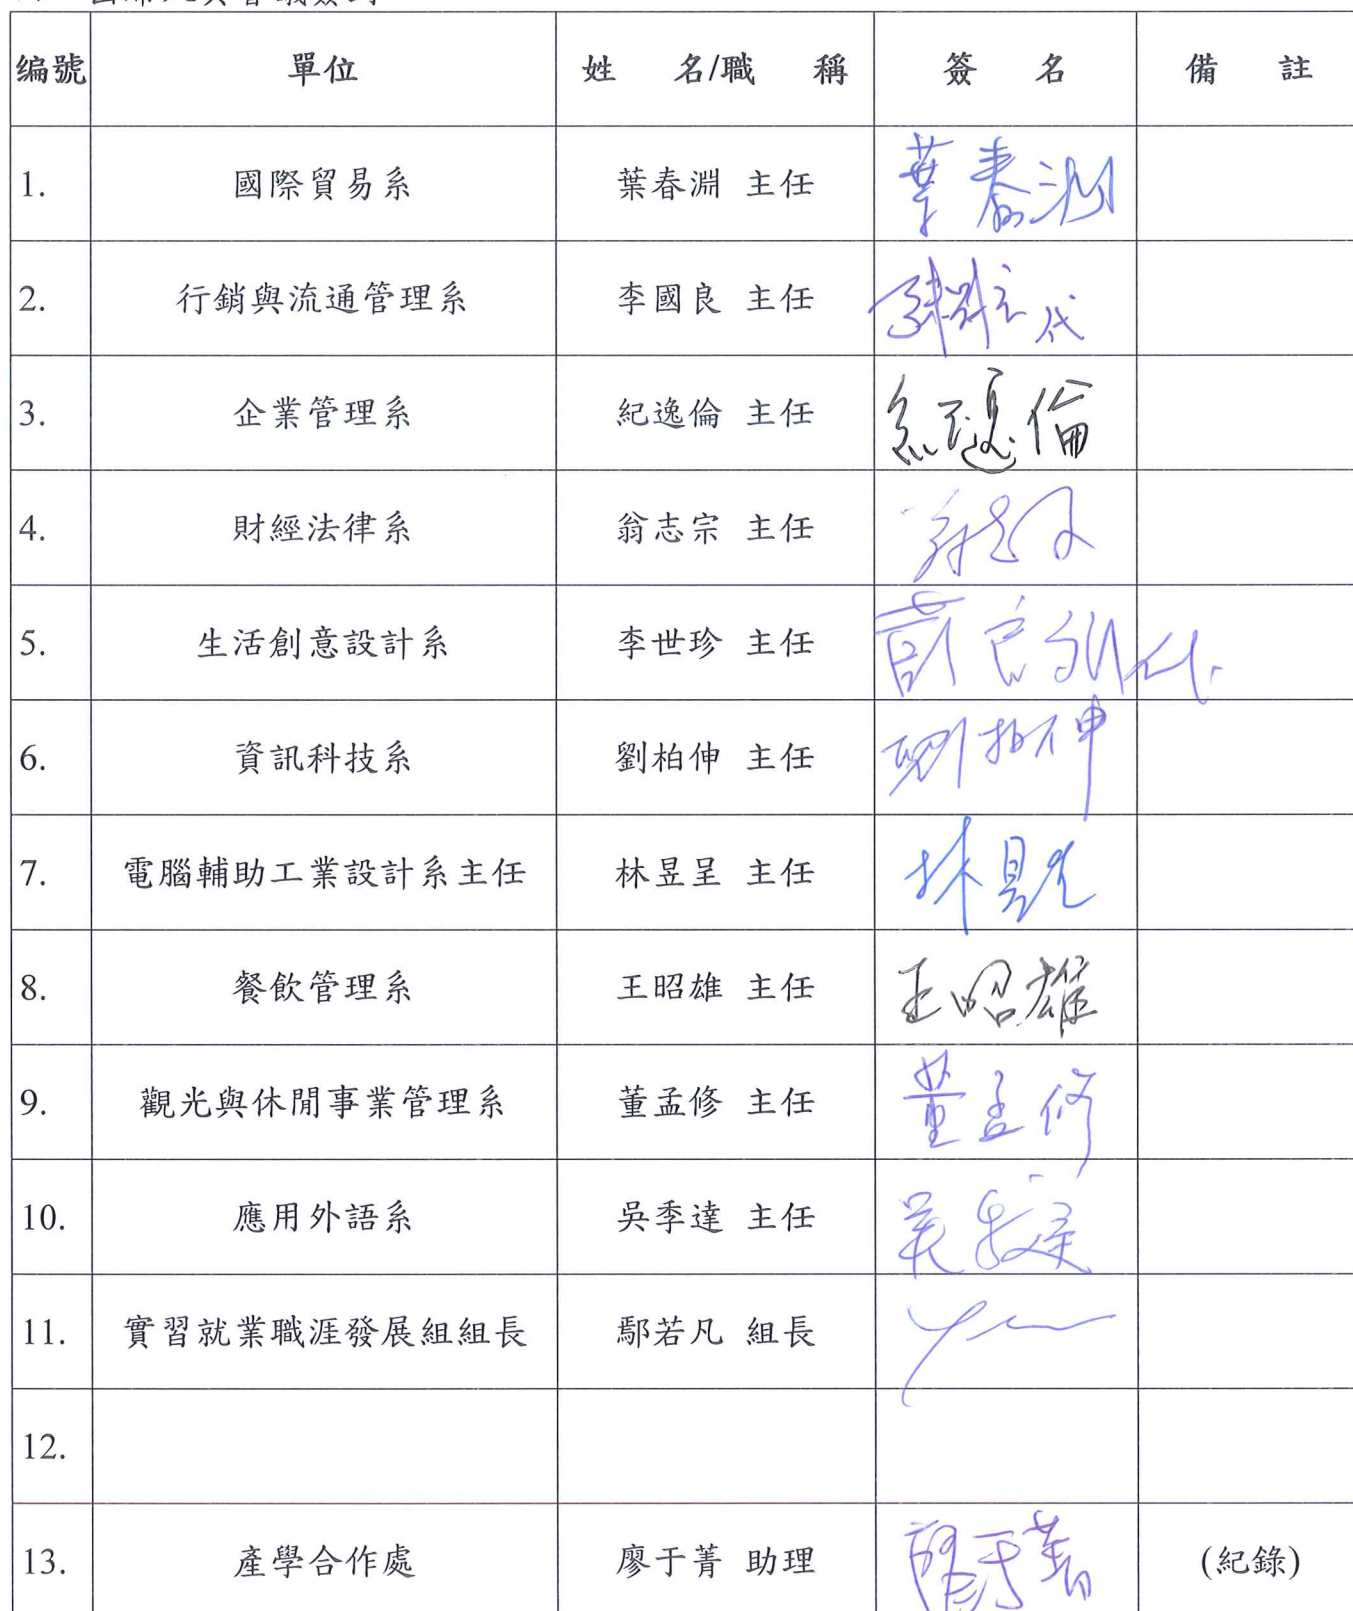 编號 單位 姓 名/職 稱 簽 名 備 註
1. 國際貿易系 葉春淵 主任 葉春淵
2. 行銷與流通管理系 李國良 主任 代
3. 企業管理系 紀逸倫 主任 紀逸倫
4. 財經法律系 翁志宗 主任
5. 生活創意設計系 李世珍 主任 代
6. 資訊科技系 劉柏伸 主任 劉柏伸
7. 電腦輔助工業設計系主任 林昱呈 主任 林昱呈
8. 餐飲管理系 王昭雄 主任 王昭雄
9. 觀光與休閒事業管理系 董孟修 主任 董孟修
10. 應用外語系 吳季達 主任 吳季達
11. 實習就業職涯發展組組長 鄢若凡 組長
12.
13. 產學合作處 廖于菁 助理 廖于菁 (紀錄)